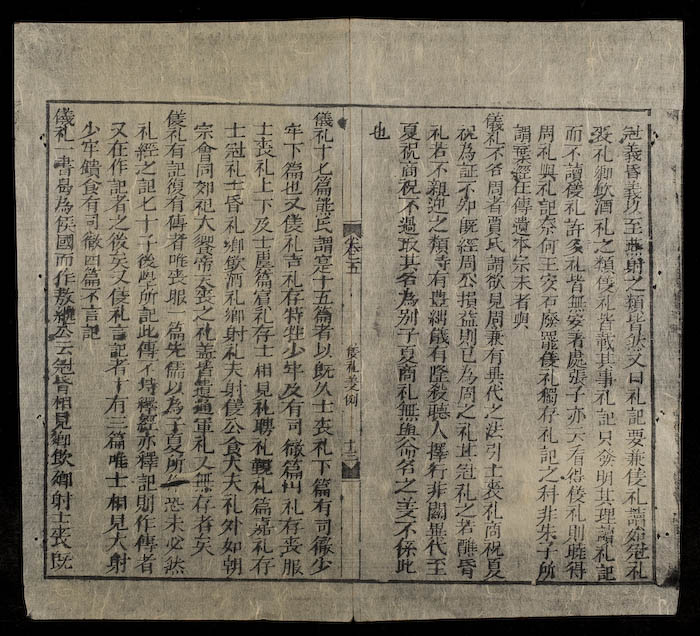 冠義昏義以至燕射之類皆然又曰礼記要兼儀礼讀如冠礼
喪礼鄉飲酒礼之類儀礼皆載其事礼記只發明其理讀礼記
而不讀儀礼許多礼皆無安著處張子亦云看得儀礼則曉得
周礼與礼記奈何王安石廢罷儀礼獨存礼記之科非朱子所
謂棄經任傳遺本宗末者與
儀礼不名周者賈氏謂欲見周兼有異代之法引士喪礼商祝夏
祝為証不知既經周公損益則已為周之礼其冠礼之若醮昏
礼若不親迎之類時有豊絀儀有隆殺聽人擇行非關異代至
夏祝商祝不過取其名為別于夏商礼無與命名之義不係此
也
卷五
儀礼義例
十三
儀礼十七篇熊氏謂寔十五篇者以既夕士喪礼下篇有司徹少
牢下篇也又儀礼吉礼存特牲少牢及有司徹篇凶礼存喪服
士喪礼上下及士虞篇賓礼存士相見礼聘礼覲礼篇嘉礼存
士冠礼士昏礼鄉飲酒礼鄉射礼大射儀公食大夫礼外如朝
宗會同郊祀大饗帝大喪之礼蓋皆遺逸軍礼又無存者矣
儀礼有記復有傳者唯喪服一篇先儒以為子夏所作恐未必然
礼經之記七十子後學所記此傳不特釋經亦釋記則作傳者
又在作記者之後矣又儀礼言記者十有三篇唯士相見大射
少牢饋食有司徹四篇不言記
儀礼一書曷為侯國而作敖継公云冠昏相見鄉飲鄉射士喪既